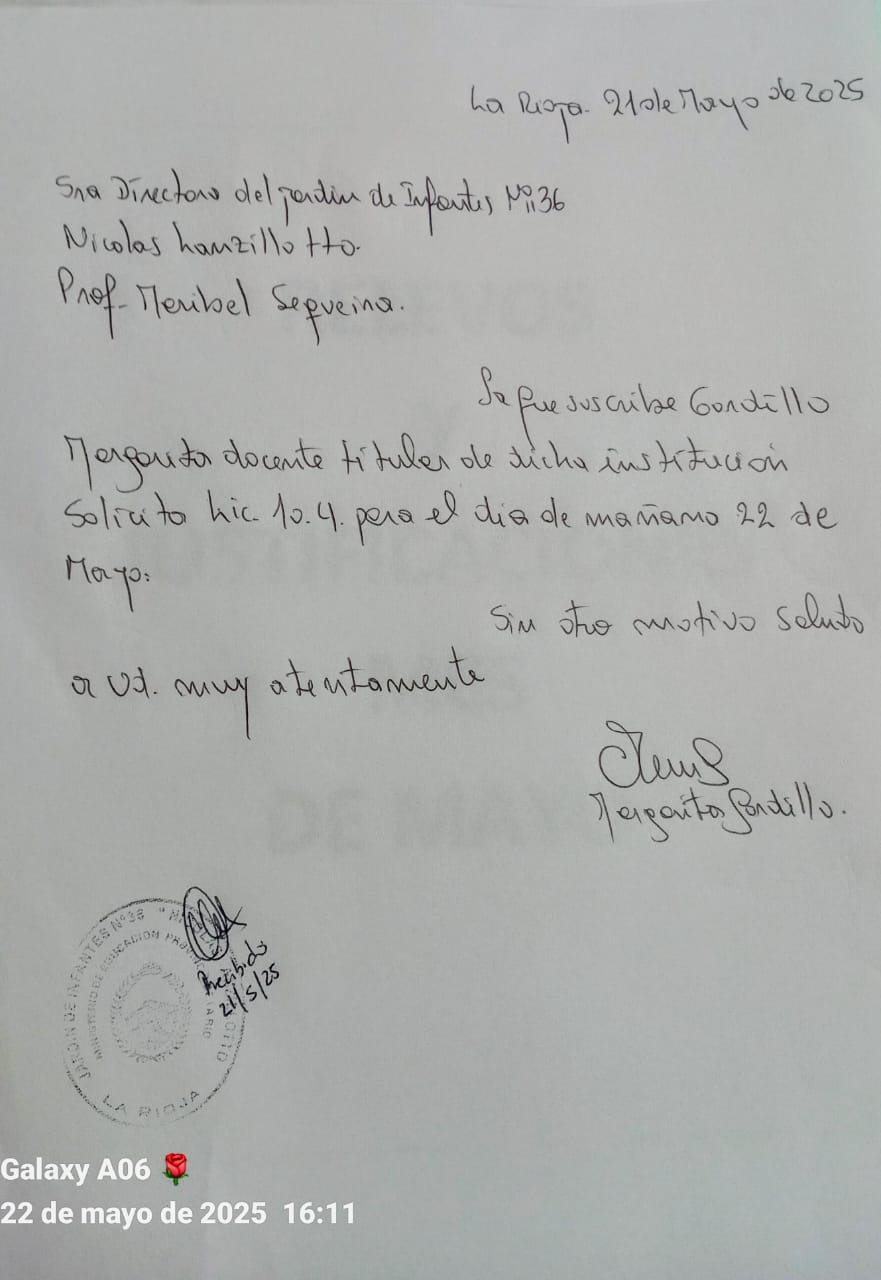 La Rioja. 21 de Mayo de 2025
Sra Directora del Jardin de Infantes Nº 36
Nicolas Lanzillotto.
Prof. Maribel Sequeira.
La que suscribe Gordillo
Margarita docente titular de dicha institución
Solicito Lic. 10.4. para el dia de mañana 22 de
Mayo.
Sin otro motivo saluto
a Ud. muy atentamente
Margarita Gordillo.
JARDIN DE INFANTES Nº36
MINISTERIO DE EDUCACION
LA RIOJA
Recibido
21/5/25
Galaxy A06 🌹
22 de mayo de 2025 16:11
RELEVOS
Y
CERTIFICACIONES
MES
DE MAYO